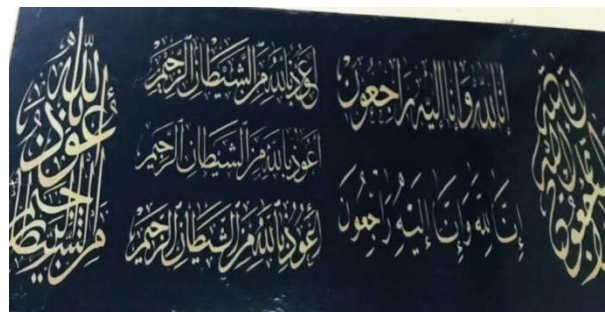 إنا لله وإنا إليه راجعون
إِنَّا لِلَّهِ وَإِنَّا إِلَيْهِ رَاجِعُونَ
إنا لله وإنا إليه راجعون
أعوذ بالله من الشيطان الرجيم
أعوذ بالله من الشيطان الرجيم
أعوذ بالله من الشيطان الرجيم
أعوذ بالله من الشيطان الرجيم